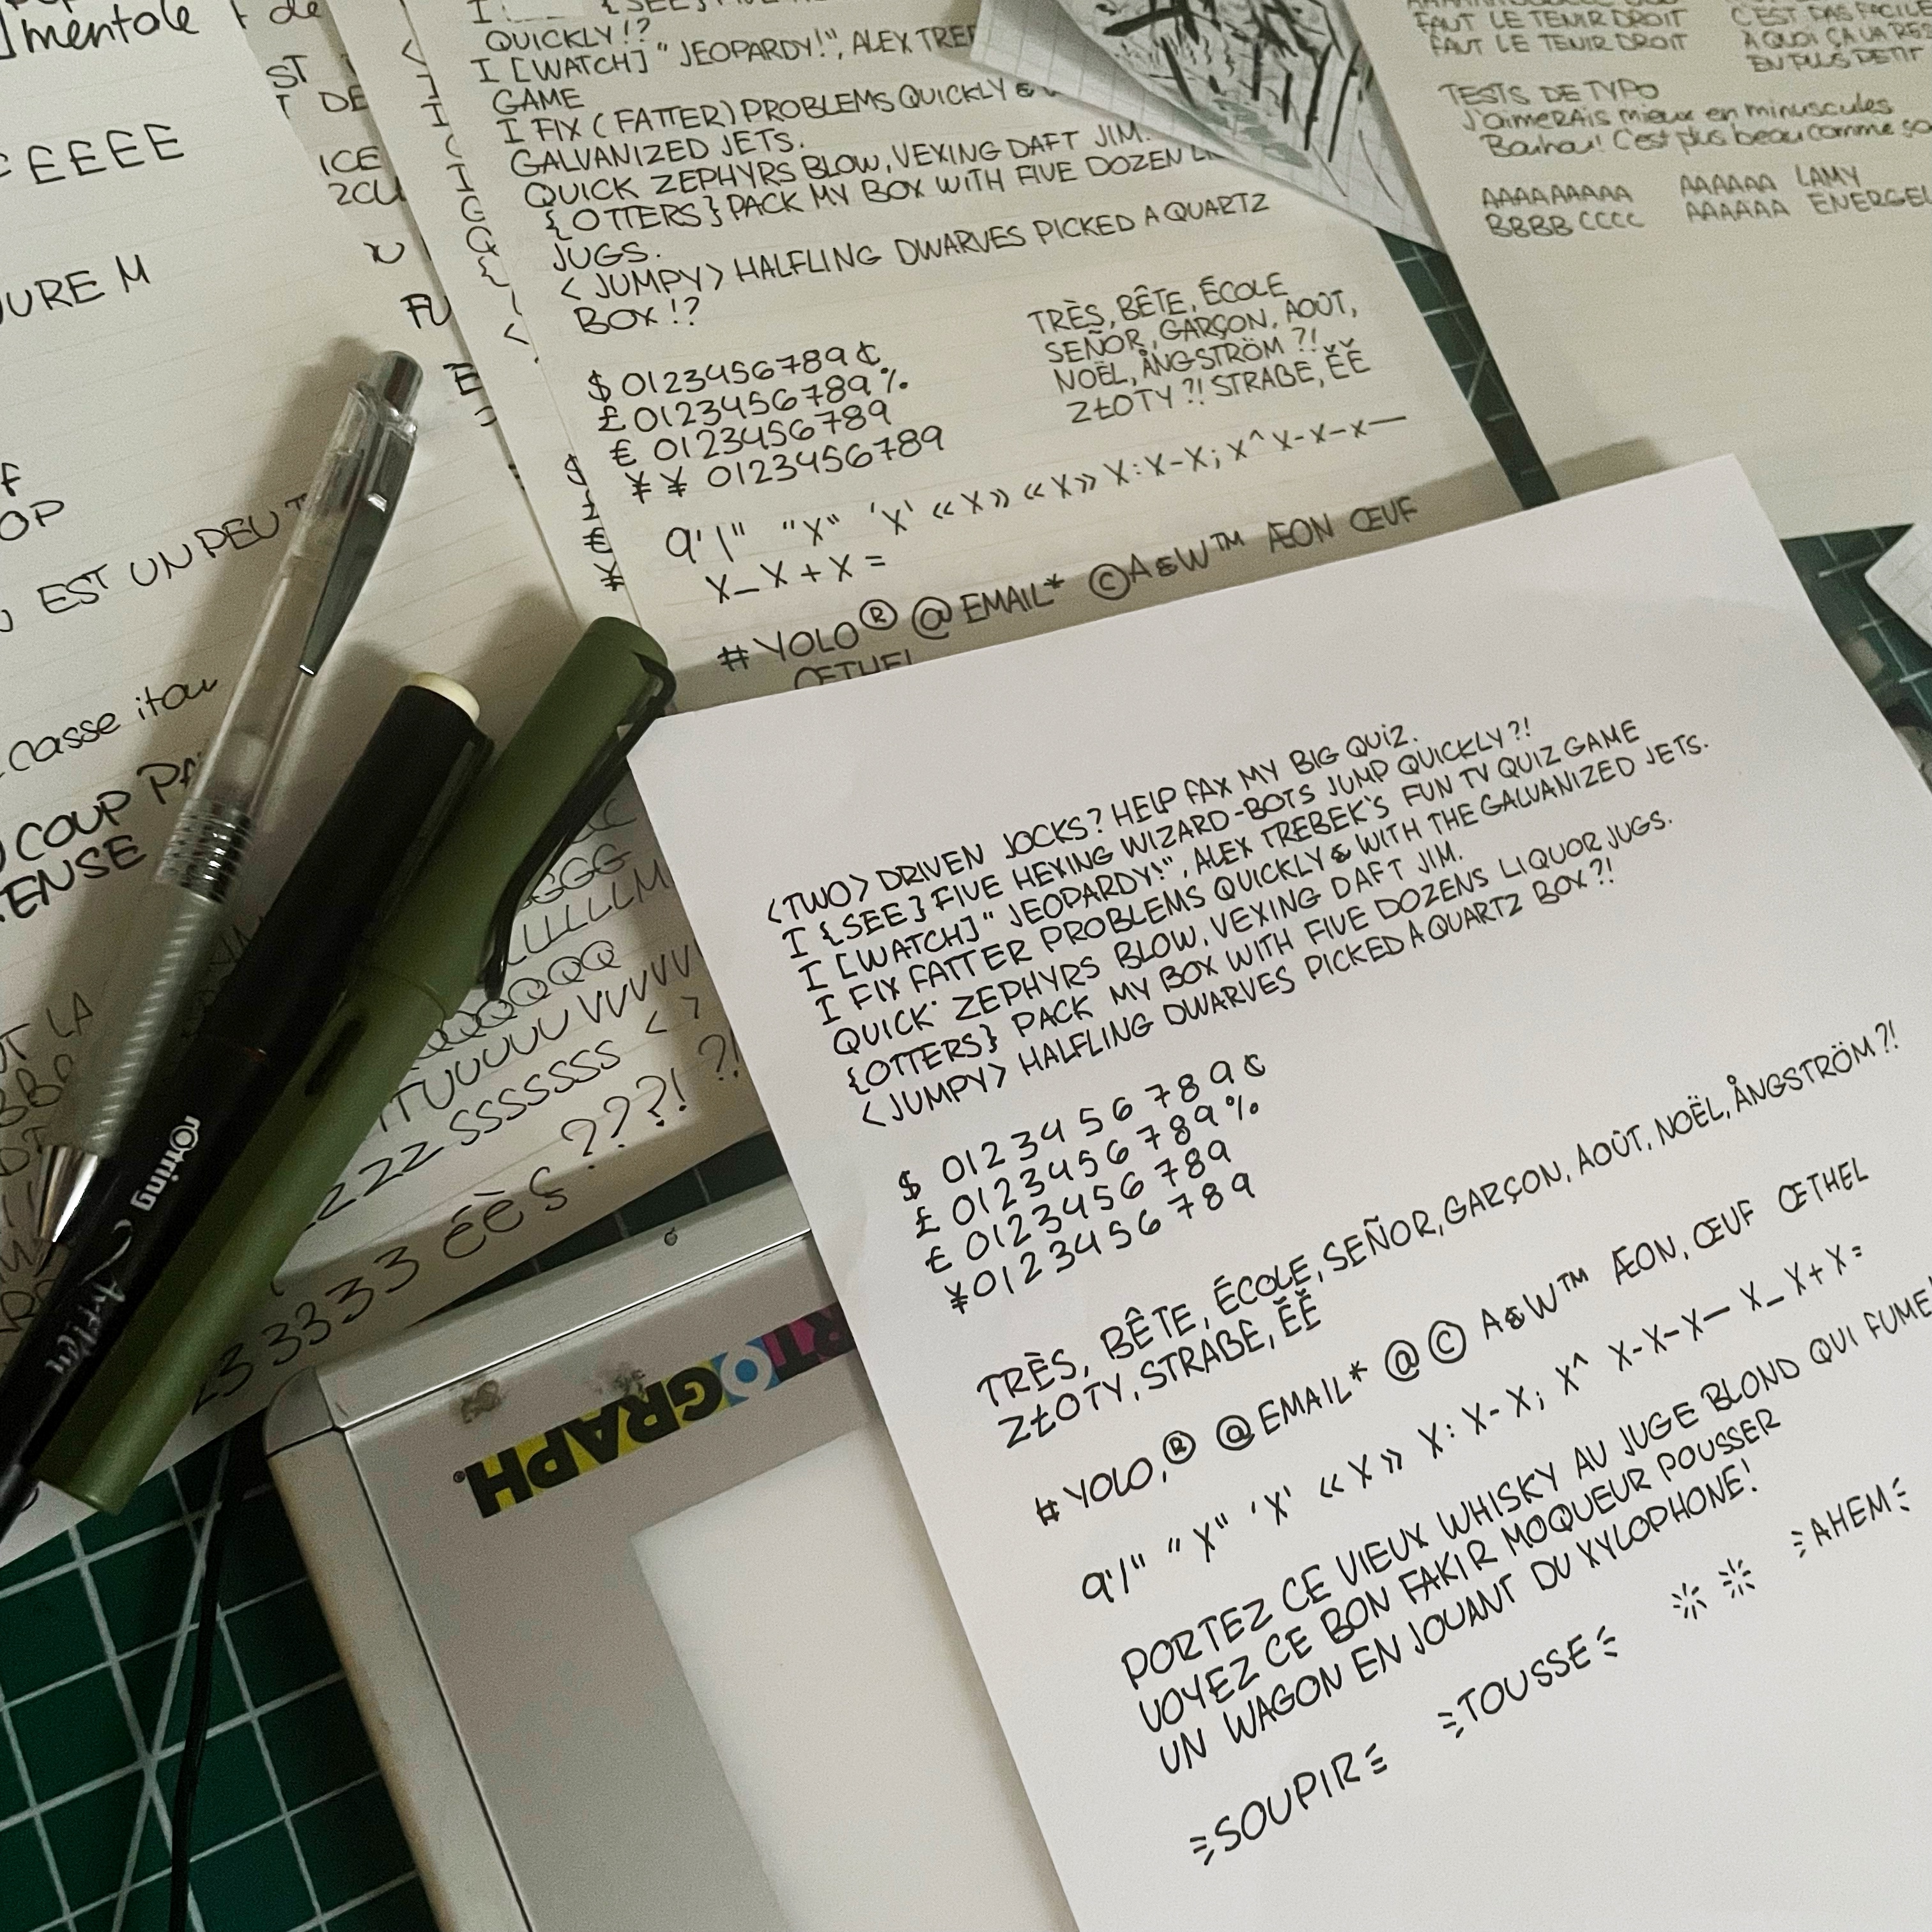 ]mentale
EEEEE
URE M
EST UN PEU
casse itou
COUP
TENSE
ICE
FU
QUICKLY!?
I [WATCH] "JEOPARDY!", ALEX
GAME
I FIX (FATTER) PROBLEMS QUICKLY &
GALVANIZED JETS.
QUICK ZEPHYRS BLOW, VEXING DAFT JIM.
{OTTERS} PACK MY BOX WITH FIVE DOZEN
JUGS.
<JUMPY> HALFLING DWARVES PICKED A QUARTZ
BOX!?
$ 0123456789¢
£ 0123456789%
€ 0123456789
¥ ¥ 0123456789
TRÈS, BÊTE, ÉCOLE
SEÑOR, GARÇON, AOÛT,
NOËL, ÅNGSTRÖM ?!
ZŁOTY ?! STRABE, ÊĔ
9'1" "X" 'X' «X» «X» X:X-X; X^ X-X-X—
X_X+X=
#YOLO® @EMAIL* ©A&W™ ÆON ŒUF
ŒTHEL
FAUT LE TENIR DROIT
FAUT LE TENIR DROIT
C'EST PAS FACILE
EN PLUS PETIT
TESTS DE TYPO
J'aimerais mieux en minuscules
C'est plus beau comme
AAAAAAAAA
BBBB CCCC
AAAAAA LAMY
AAAAAA
<TWO> DRIVEN JOCKS? HELP FAX MY BIG QUIZ.
I {SEE} FIVE HEXING WIZARD-BOTS JUMP QUICKLY?!
I [WATCH] "JEOPARDY!", ALEX TREBEK'S FUN TV QUIZ GAME
I FIX FATTER PROBLEMS QUICKLY & WITH THE GALVANIZED JETS.
QUICK ZEPHYRS BLOW, VEXING DAFT JIM.
{OTTERS} PACK MY BOX WITH FIVE DOZENS LIQUOR JUGS.
<JUMPY> HALFLING DWARVES PICKED A QUARTZ BOX?!
$ 0123456789¢
£ 0123456789%
€ 0123456789
¥0123456789
TRÈS, BÊTE, ÉCOLE, SEÑOR, GARÇON, AOÛT, NOËL, ÅNGSTRÖM?!
ZŁOTY, STRABE, ÊĔ
#YOLO,® @EMAIL* @© A&W™ ÆON, ŒUF ŒTHEL
9'1" "X" 'X' «X» X:X-X; X^ X-X-X— X_X+X=
PORTEZ CE VIEUX WHISKY AU JUGE BLOND QUI FUME!
VOYEZ CE BON FAKIR MOQUEUR POUSSER
UN WAGON EN JOUANT DU XYLOPHONE!
SOUPIR TOUSSE AHEM
rOtring
ArtPen
GGG
QQQQQ
UUUUU VVVVVV
ZZZZ SSSSSSS < >
33333 éès ???! ?!
ARTOGRAPH